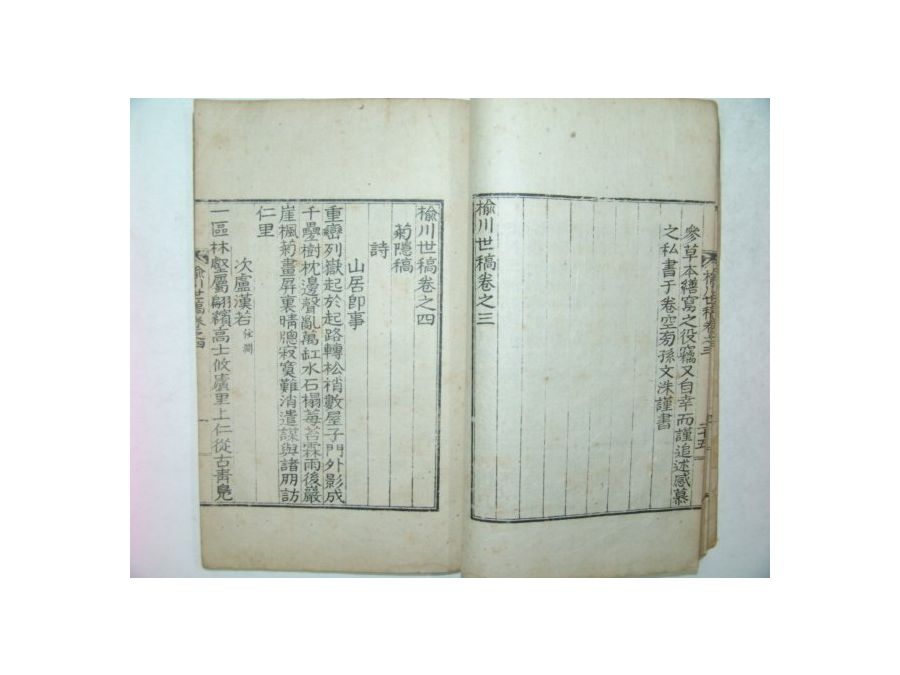 參草本繕寫之役竊又自幸而謹追述感慕
之私書于卷空旁孫文洙謹書
榆川世稿卷之三
榆川世稿卷之三
二十五
榆川世稿卷之四
菊隱稿
詩
山居即事
重巒列嶽起於起路轉松梢數屋子門外影成
千疊樹枕邊聲亂萬缸水石榻莓苔霖雨後巖
崖楓菊畫屏裏晴窓寂寞難消遣謀與諸朋訪
仁里
次盧漢若
一區林壑屬翩高士攸廬里上仁從古靑
榆川世稿卷之四